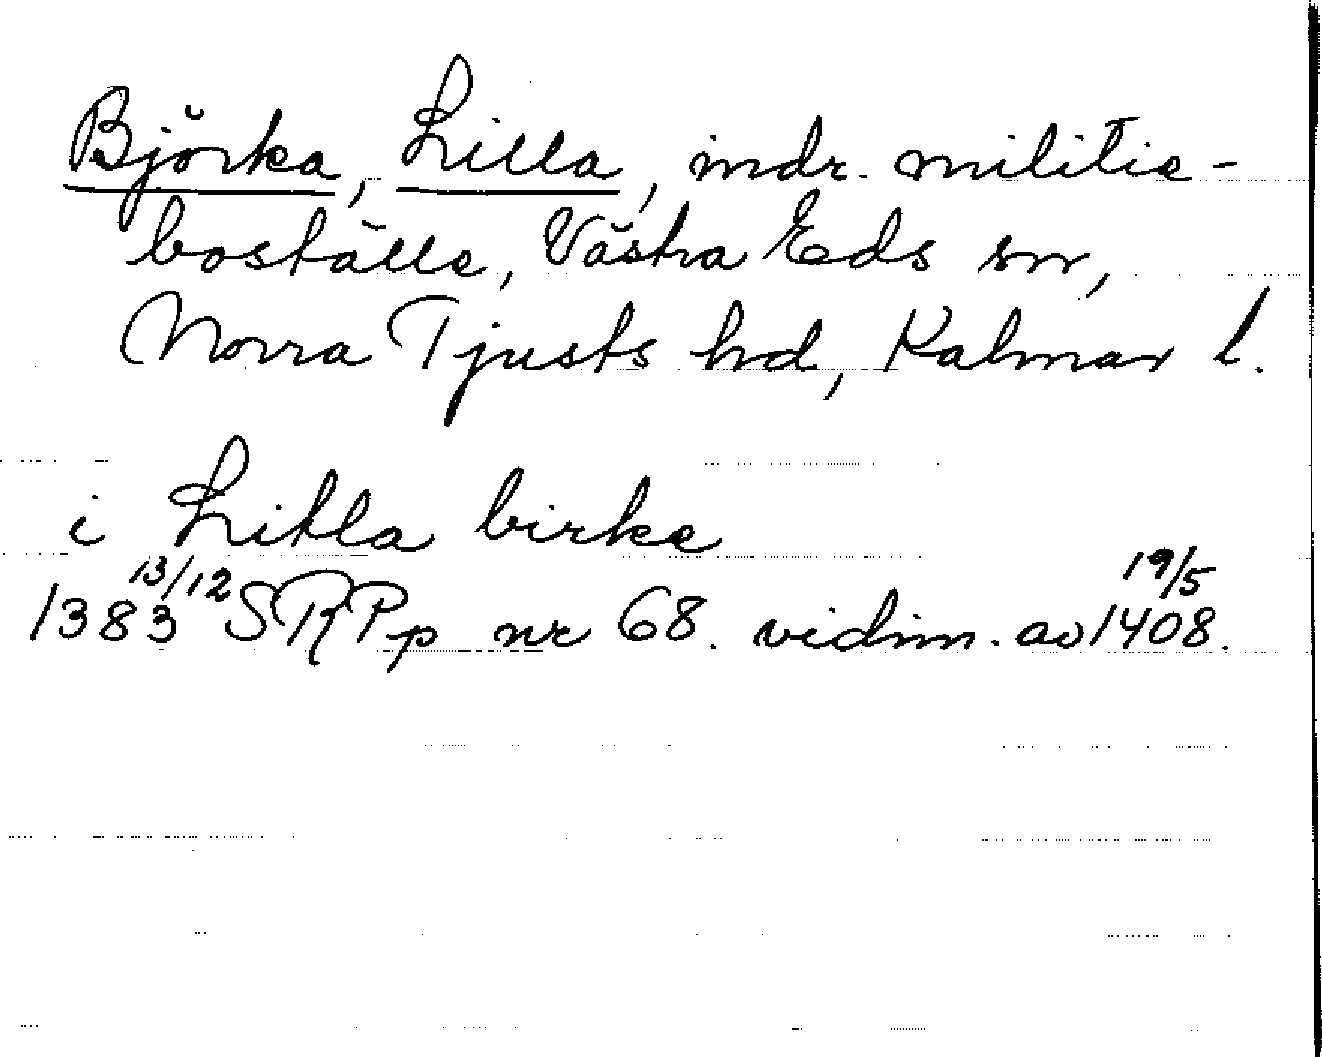 Björka, Lilla, indr. militie-
boställe, Västra Eds sn,
Norra Tjusts hd, Kalmar l.
i Litla birke
1383 13/12 SRPp nr 68. vidim. av 1408 19/5.